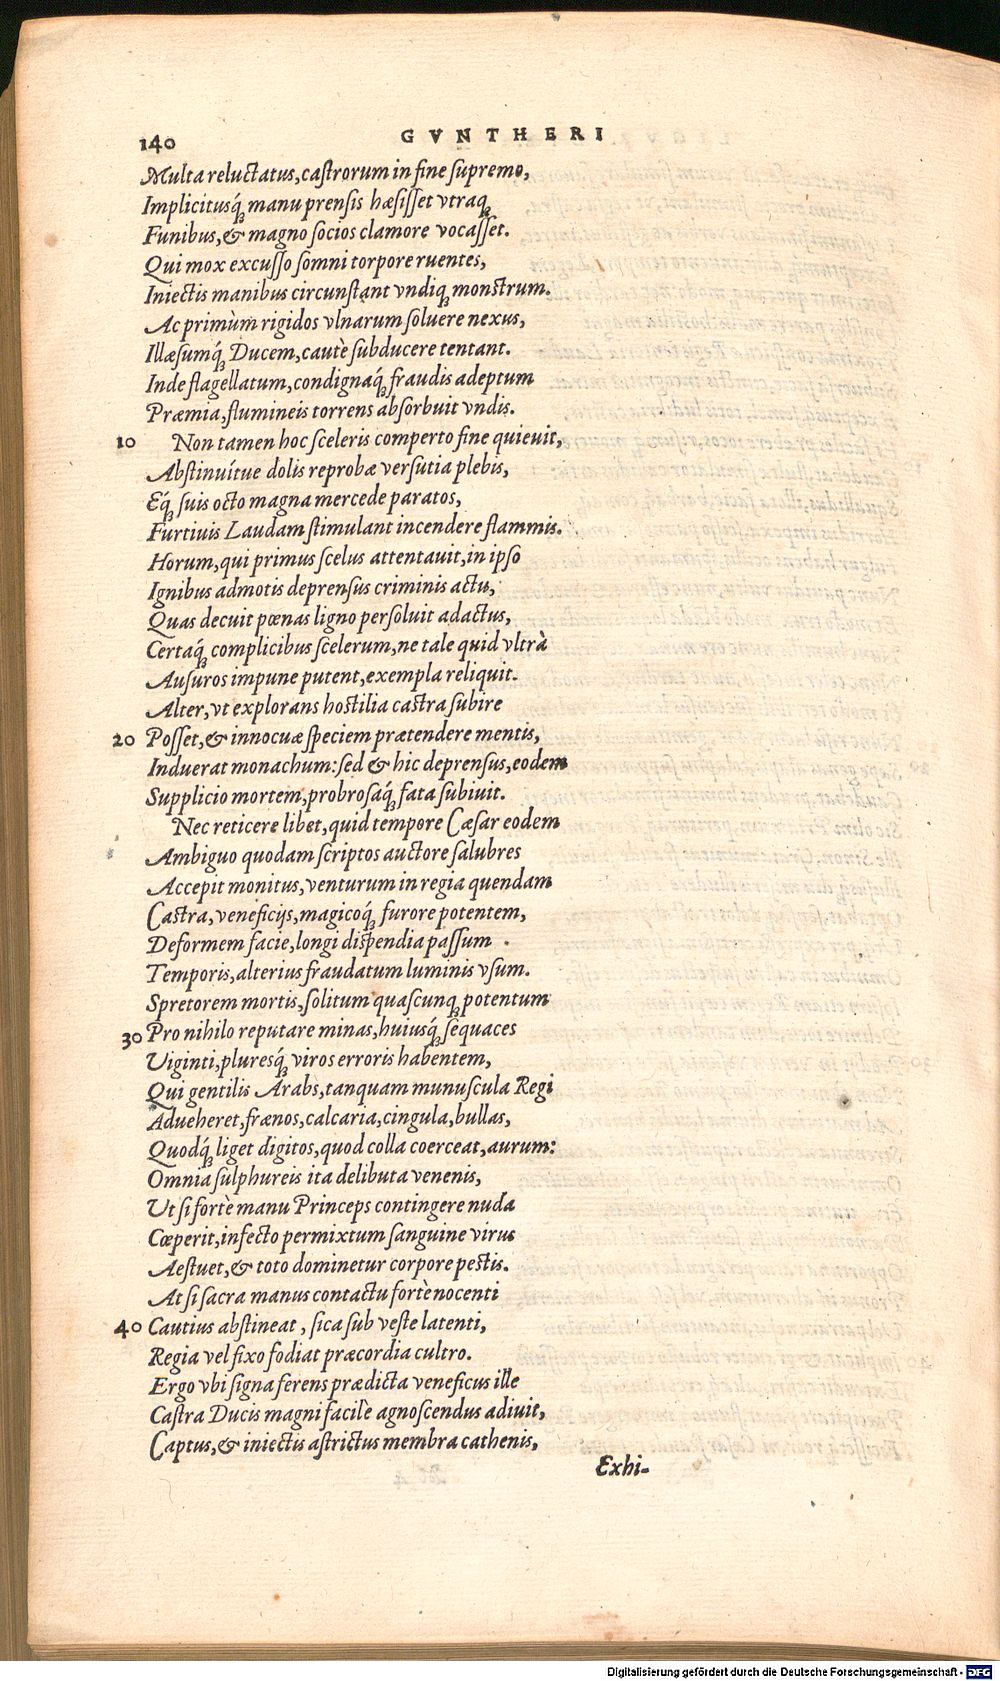 140 GVNTHERI
Multa reluctatus, castrorum in fine supremo,
Implicitusq́; manu prensis hæsisset vtraq;
Funibus, & magno socios clamore vocasset.
Qui mox excusso somni torpore ruentes,
Iniectis manibus circunstant vndiq; monstrum.
Ac primùm rigidos vlnarum soluere nexus,
Illæsumq́; Ducem, cautè subducere tentant.
Inde flagellatum, condignaq́; fraudis adeptum
Præmia, flumineis torrens absorbuit vndis.
10 Non tamen hoc sceleris comperto fine quieuit,
Abstinuítue dolis reprobæ versutia plebis,
Eq́; suis octo magna mercede paratos,
Furtiuis Laudam stimulant incendere flammis.
Horum, qui primus scelus attentauit, in ipso
Ignibus admotis deprensus criminis actu,
Quas decuit pœnas ligno persoluit adactus,
Certaq́; complicibus scelerum, ne tale quid vltrà
Ausuros impune putent, exempla reliquit.
Alter, vt explorans hostilia castra subire
20 Posset, & innocuæ speciem prætendere mentis,
Induerat monachum: sed & hic deprensus, eodem
Supplicio mortem, probrosaq́; fata subiuit.
Nec reticere libet, quid tempore Cæsar eodem
Ambiguo quodam scriptos auctore salubres
Accepit monitus, venturum in regia quendam
Castra, veneficijs, magicoq́; furore potentem,
Deformem facie, longi dispendia passum
Temporis, alterius fraudatum luminis vsum.
Spretorem mortis, solitum quascunq; potentum
30 Pro nihilo reputare minas, huiusq́; sequaces
Uiginti, pluresq́; viros erroris habentem,
Qui gentilis Arabs, tanquam munuscula Regi
Adueheret, frænos, calcaria, cingula, bullas,
Quodq́; liget digitos, quod colla coerceat, aurum:
Omnia sulphureis ita delibuta venenis,
Ut si fortè manu Princeps contingere nuda
Cœperit, infecto permixtum sanguine virus
Aestuet, & toto dominetur corpore pestis.
At si sacra manus contactu fortè nocenti
40 Cautius abstineat, sica sub veste latenti,
Regia vel fixo fodiat præcordia cultro.
Ergo vbi signa ferens prædicta veneficus ille
Castra Ducis magni facilè agnoscendus adiuit,
Captus, & iniectis astrictus membra cathenis,
Exhi-
Digitalisierung gefördert durch die Deutsche Forschungsgemeinschaft - DFG